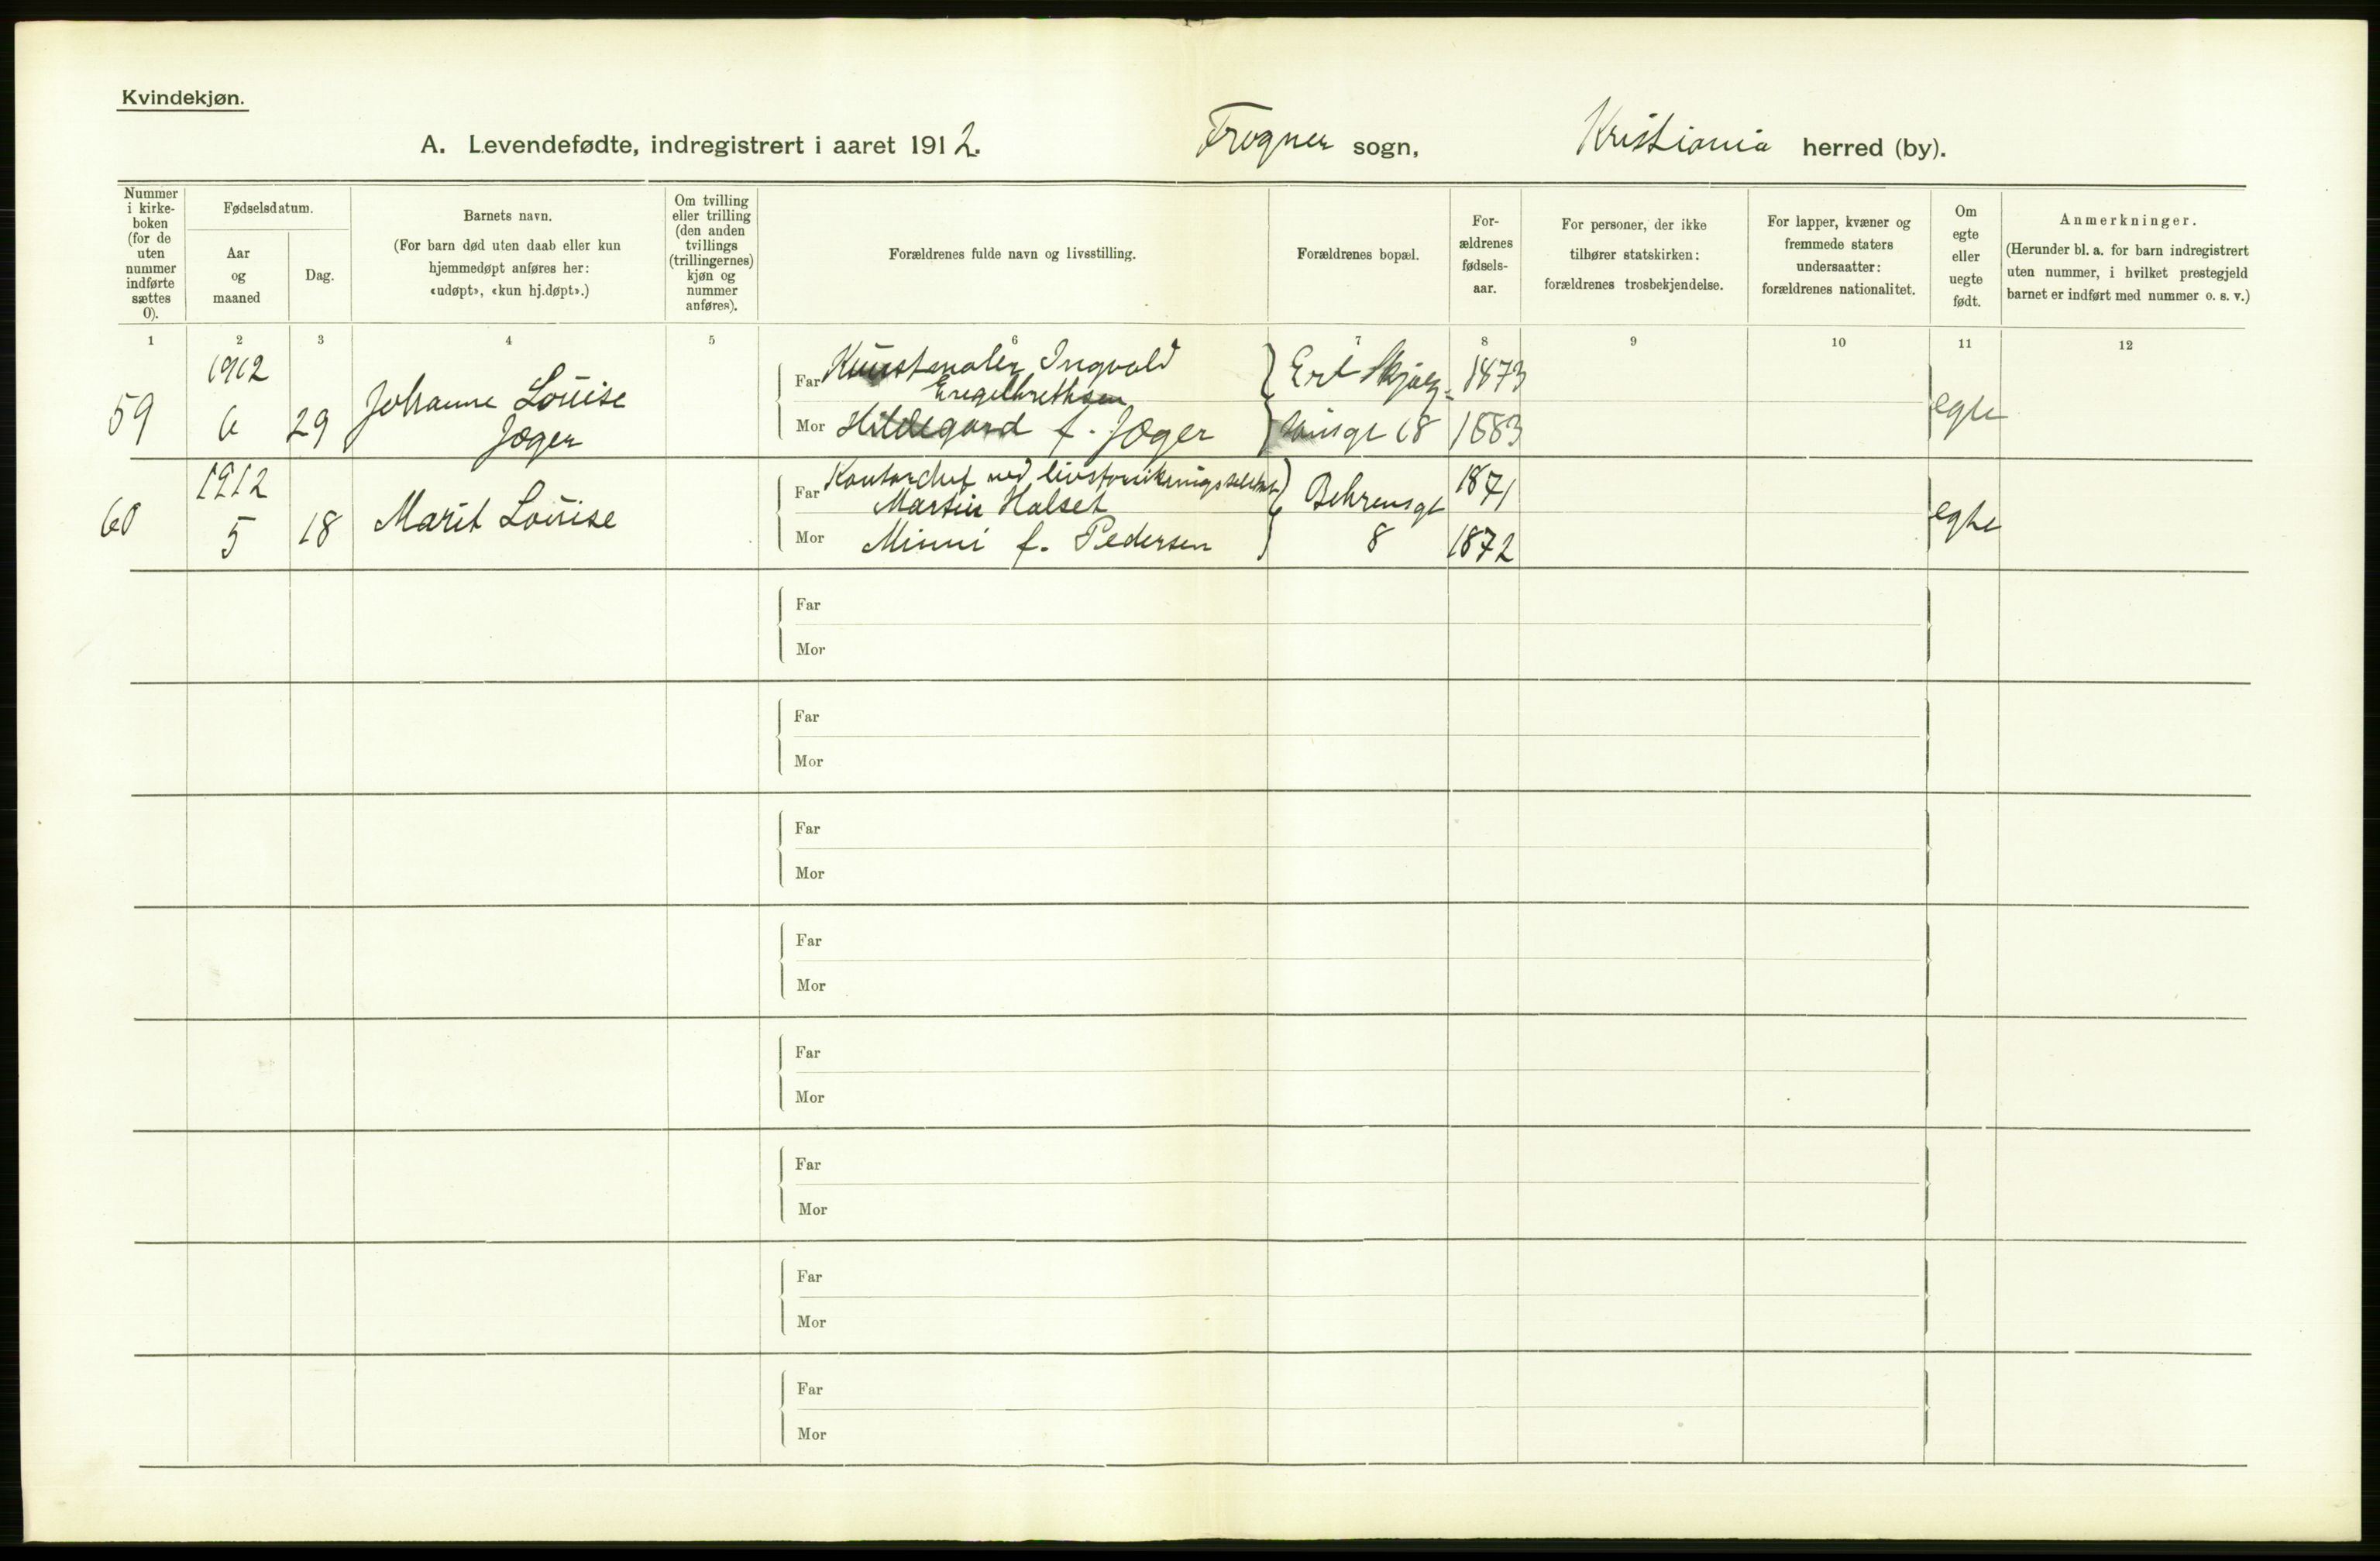 Kvindekjøn.
A. Levendefødte, indregistrert i aaret 1912. Frogner sogn, Kristiania herred (by).
Nummer
i kirke-
boken
(for de
uten
nummer
indførte
sættes
0).
Fødselsdatum.
Aar
og
maaned
Dag.
Barnets navn.
(For barn død uten daab eller kun
hjemmedøpt anføres her:
«udøpt», «kun hj.døpt».)
Om tvilling
eller trilling
(den anden
tvillings
(trillingernes)
kjøn og
nummer
anføres).
Forældrenes fulde navn og livsstilling.
Forældrenes bopæl.
For-
ældrenes
fødsels-
aar.
For personer, der ikke
tilhører statskirken:
forældrenes trosbekjendelse.
For lapper, kvæner og
fremmede staters
undersaatter:
forældrenes nationalitet.
Om
egte
eller
uegte
født.
Anmerkninger.
(Herunder bl. a. for barn indregistrert
uten nummer, i hvilket prestegjeld
barnet er indført med nummer o. s. v.)
1 2 3 4 5 6 7 8 9 10 11 12
59
1912
6
29
Johanne Louise
Jæger
Far Kunstmaler Ingvald
Engelbrethsen
Mor Hildegard f. Jæger
18
1873
1883
egte
60
1912
5
18
Marit Louise
Far Kontorchef ved
Martin Halset
Mor Minni f. Pedersen
Behrensgt
8
1871
1872
egte
Far
Mor
Far
Mor
Far
Mor
Far
Mor
Far
Mor
Far
Mor
Far
Mor
Far
Mor